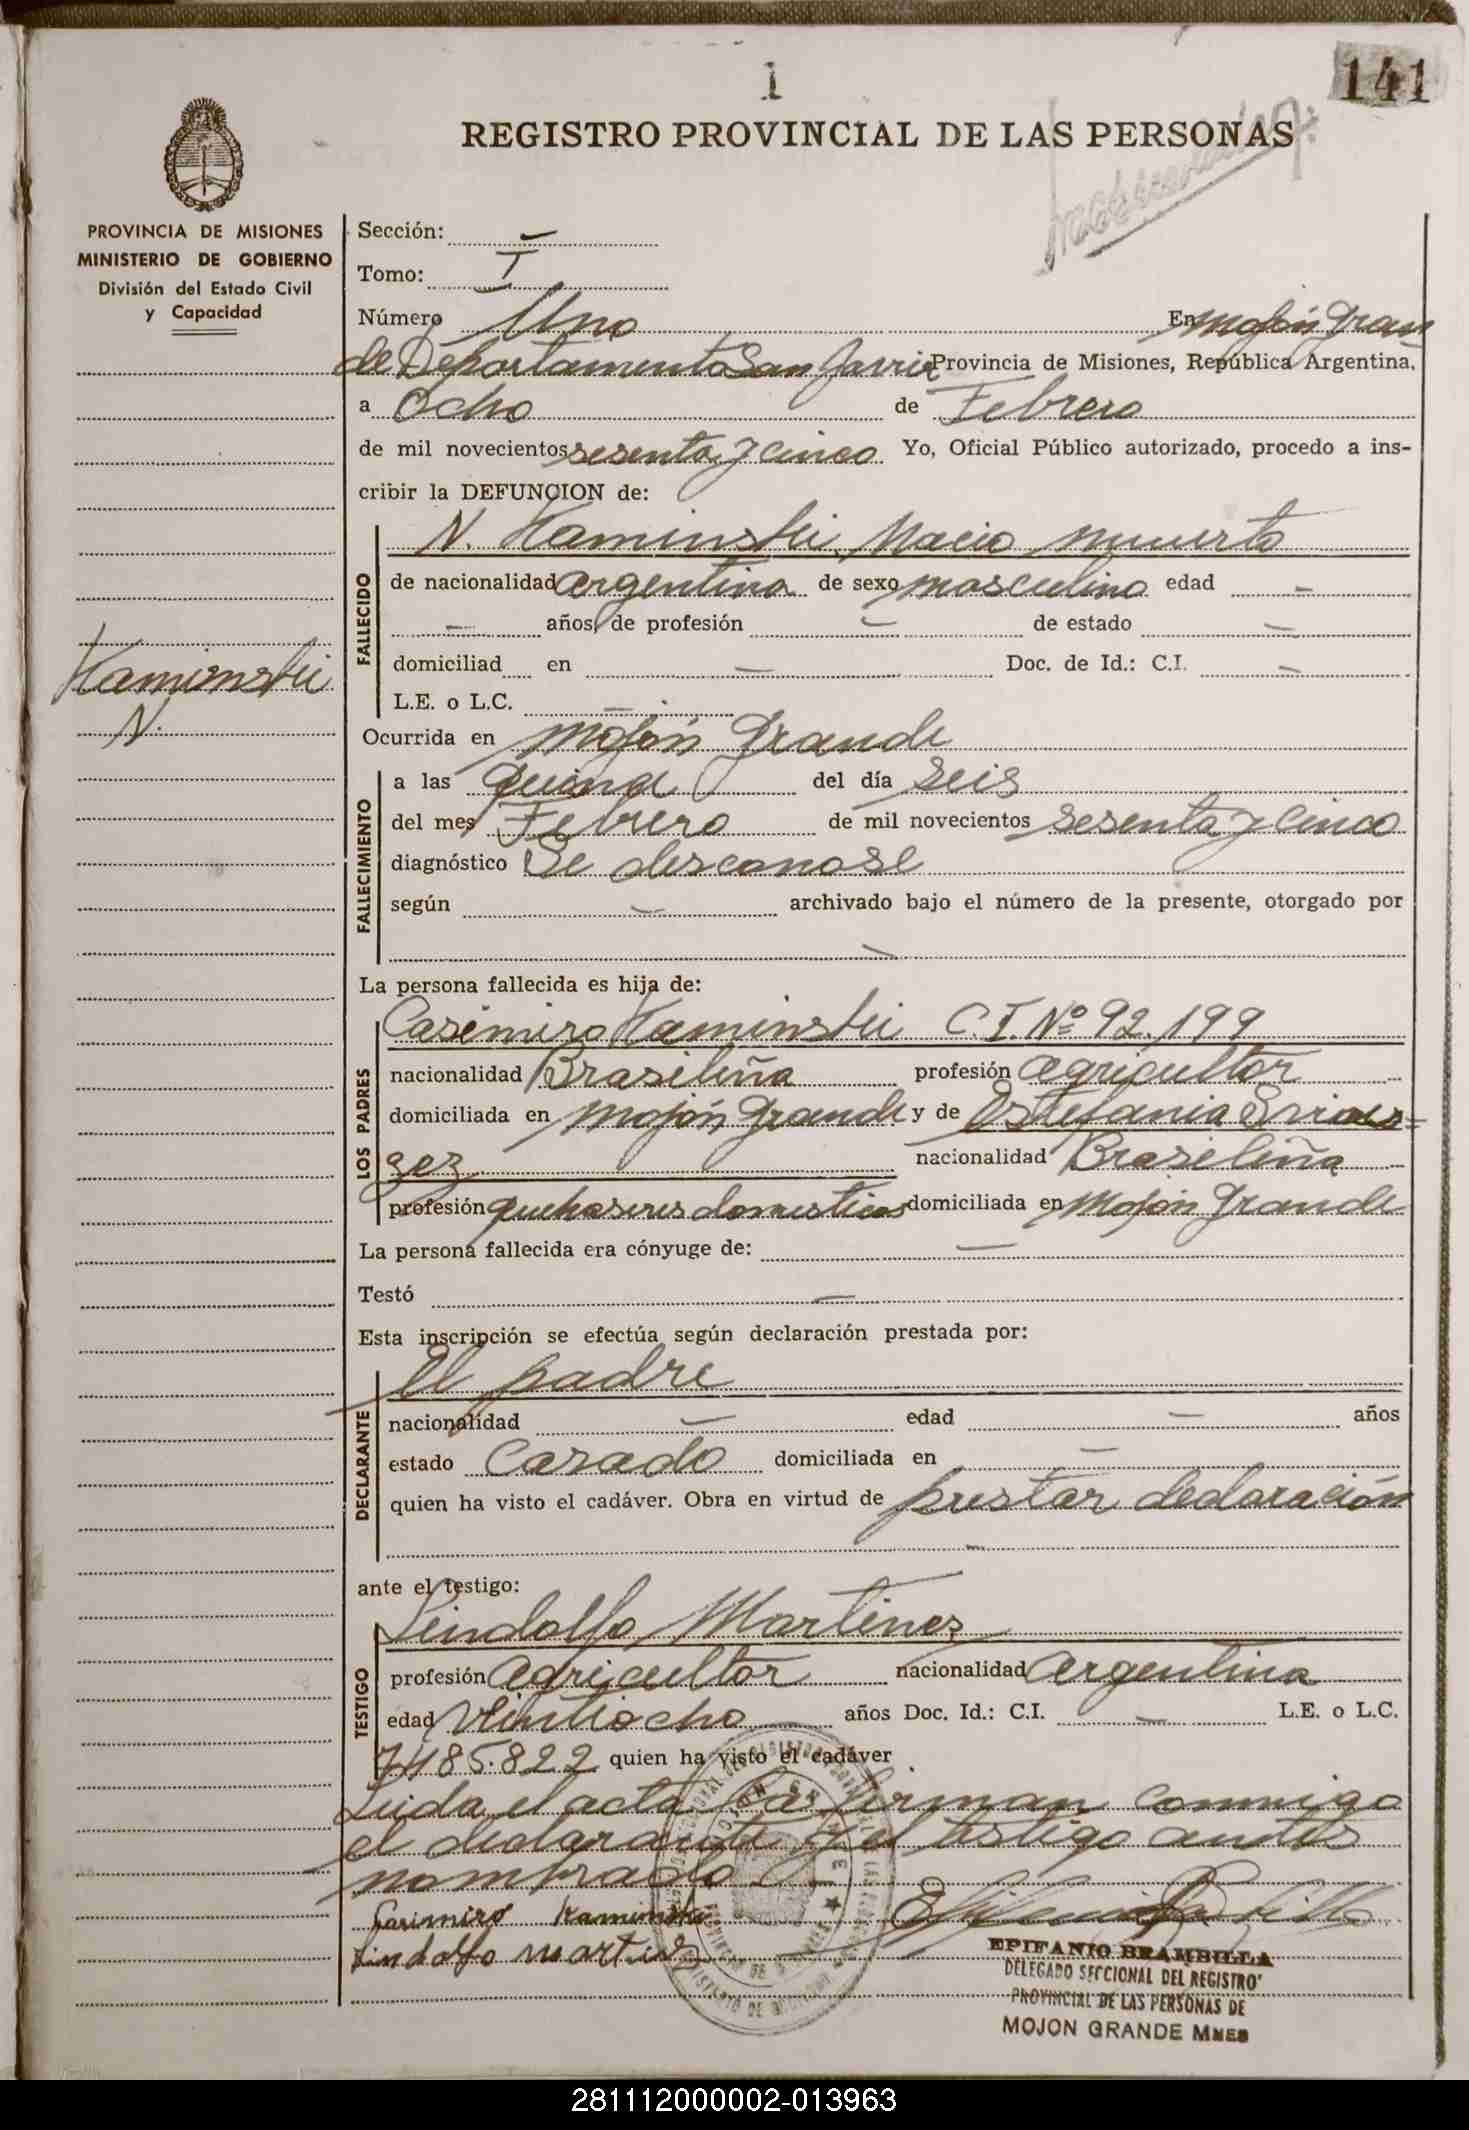 1
141
REGISTRO PROVINCIAL DE LAS PERSONAS
PROVINCIA DE MISIONES
MINISTERIO DE GOBIERNO
División del Estado Civil
y Capacidad
Kaminski
N.
Sección: —
Tomo: I
Número Uno En Mojón Gran
de Departamento San Javier Provincia de Misiones, República Argentina,
a Ocho de Febrero
de mil novecientos sesenta y cinco Yo, Oficial Público autorizado, procedo a ins-
cribir la DEFUNCION de:
FALLECIDO
N. Kaminski Nacio muerto
de nacionalidad argentina de sexo masculino edad —
— años, de profesión — de estado —
domiciliad en — Doc. de Id.: C.I. —
L.E. o L.C. —
Ocurrida en Mojón Grande
FALLECIMIENTO
a las quince del día seis
del mes Febrero de mil novecientos sesenta y cinco
diagnóstico Se desconose
según — archivado bajo el número de la presente, otorgado por
—
La persona fallecida es hija de:
LOS PADRES
Casimiro Kaminski C.I. Nº 92.199
nacionalidad Brasileña profesión agricultor
domiciliada en Mojón Grande y de Estefania
nacionalidad Brasileña
profesión quehaseres domesticos domiciliada en Mojón Grande
La persona fallecida era cónyuge de: —
Testó —
Esta inscripción se efectúa según declaración prestada por:
DECLARANTE
El padre
nacionalidad — edad — años
estado Casado domiciliada en —
quien ha visto el cadáver. Obra en virtud de prestar declaración
ante el testigo:
TESTIGO
Lindolfo Martinez
profesión agricultor nacionalidad argentina
edad Veintiocho años Doc. Id.: C.I. — L.E. o L.C.
7485.822 quien ha visto el cadáver
Leida el acta la firman conmigo
el declarante y el testigo antes
nombrado
Casimiro Kaminski
Lindolfo Martinez
EPIFANIO BRAMBILLA
DELEGADO SECCIONAL DEL REGISTRO
PROVINCIAL DE LAS PERSONAS DE
MOJON GRANDE MNES
281112000002-013963